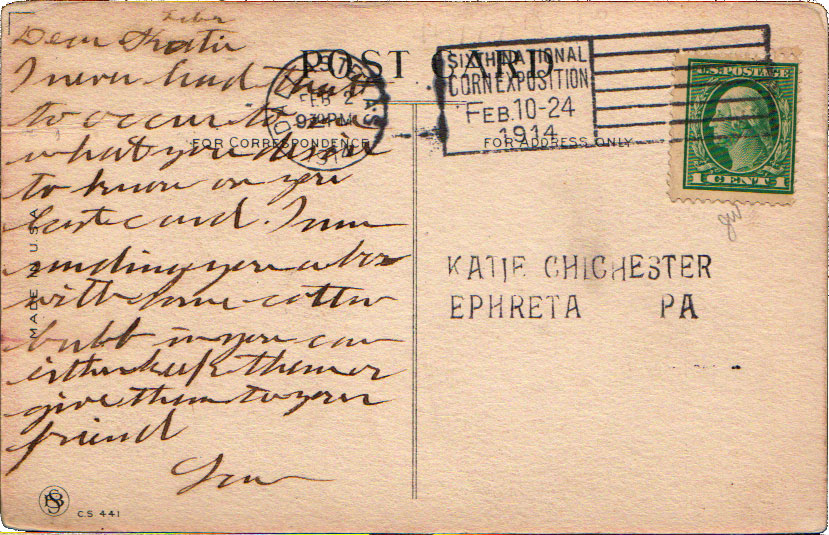 Dear Katie
I never had that
to occur to
what you desire
to know on you
card. I am
sending you a box
with some cotton
in you can
either keep them or
give them to your
friend
POST CARD
FOR CORRESPONDENCE
FEB 2
930PM
SIXTH NATIONAL
CORN EXPOSITION
FEB. 10-24
1914
FOR ADDRESS ONLY
U.S. POSTAGE
1 CENT 1
KATIE CHICHESTER
EPHRETA PA
MADE IN U.S.A.
C.S. 441